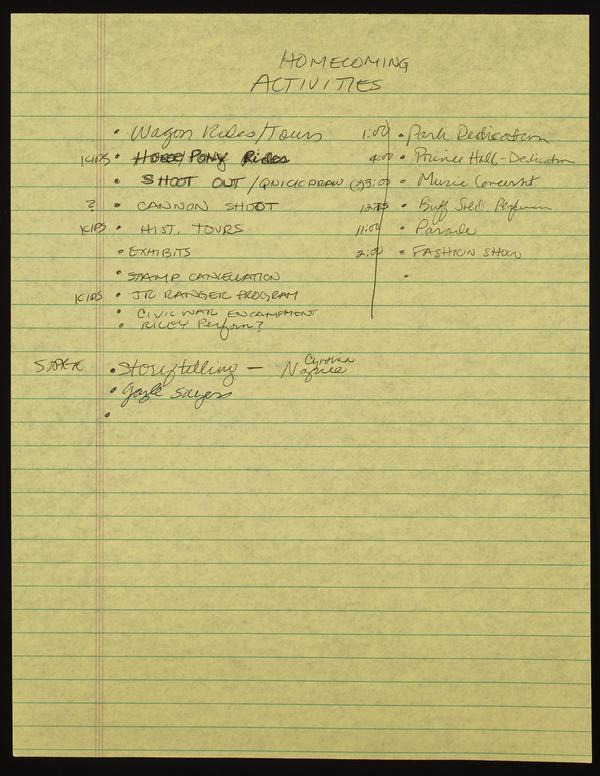 HOMECOMING
ACTIVITIES
• Wagon Rides/Tours 1:00 • Park Dedication
KIDS • Horse/Pony Rides 4:00 • Prince Hall-Dedication
• SHOOT OUT/QUICKDRAW (2)3:00 • Music Concert
? • CANNON SHOOT • Buff Sold. Perform
KIDS • HIST. TOURS 11:00 • Parade
• EXHIBITS 2:00 • FASHION SHOW
• STAMP CANCELLATION •
KIDS • JR RANGER PROGRAM
• CIVIL WAR ENCAMPMENT
• RILEY Perform?
Cynthia
• Storytelling —
• Gayle Sayers
•